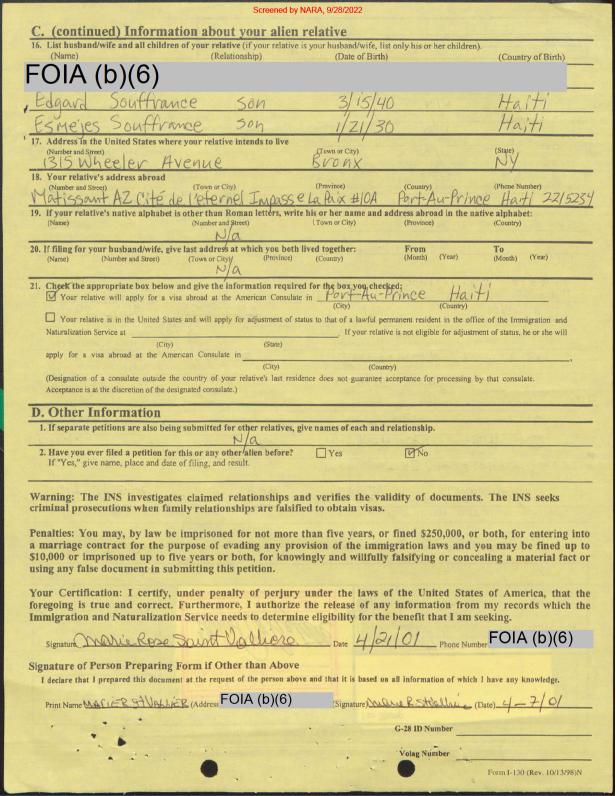 Screened by NARA, 9/28/2022
C. (continued) Information about your alien relative
16. List husband/wife and all children of your relative (if your relative is your husband/wife, list only his or her children).
(Name) (Relationship) (Date of Birth) (Country of Birth)
FOIA (b)(6)
Edgard Souffrance son 3/15/40 Haiti
Esmejes Souffrance son 1/21/30 Haiti
17. Address in the United States where your relative intends to live
(Number and Street) (Town or City) (State)
1315 Wheeler Avenue Bronx NY
18. Your relative's address abroad
(Number and Street) (Town or City) (Province) (Country) (Phone Number)
Matissant AZ Cité de l'eternel Impasse La Paix #10A Port-Au-Prince Haiti 2215234
19. If your relative's native alphabet is other than Roman letters, write his or her name and address abroad in the native alphabet:
(Name) (Number and Street) (Town or City) (Province) (Country)
N/a
20. If filing for your husband/wife, give last address at which you both lived together: From To
(Name) (Number and Street) (Town or City) (Province) (Country) (Month) (Year) (Month) (Year)
N/a
21. Check the appropriate box below and give the information required for the box you checked:
Your relative will apply for a visa abroad at the American Consulate in Port-Au-Prince Haiti
(City) (Country)
Your relative is in the United States and will apply for adjustment of status to that of a lawful permanent resident in the office of the Immigration and
Naturalization Service at . If your relative is not eligible for adjustment of status, he or she will
(City) (State)
apply for a visa abroad at the American Consulate in .
(City) (Country)
(Designation of a consulate outside the country of your relative's last residence does not guarantee acceptance for processing by that consulate.
Acceptance is at the discretion of the designated consulate.)
D. Other Information
1. If separate petitions are also being submitted for other relatives, give names of each and relationship.
N/a
2. Have you ever filed a petition for this or any other alien before? Yes No
If "Yes," give name, place and date of filing, and result.
Warning: The INS investigates claimed relationships and verifies the validity of documents. The INS seeks
criminal prosecutions when family relationships are falsified to obtain visas.
Penalties: You may, by law be imprisoned for not more than five years, or fined $250,000, or both, for entering into
a marriage contract for the purpose of evading any provision of the immigration laws and you may be fined up to
$10,000 or imprisoned up to five years or both, for knowingly and willfully falsifying or concealing a material fact or
using any false document in submitting this petition.
Your Certification: I certify, under penalty of perjury under the laws of the United States of America, that the
foregoing is true and correct. Furthermore, I authorize the release of any information from my records which the
Immigration and Naturalization Service needs to determine eligibility for the benefit that I am seeking.
Signature Marie Rose Saint Valliere Date 4/21/01 Phone Number FOIA (b)(6)
Signature of Person Preparing Form if Other than Above
I declare that I prepared this document at the request of the person above and that it is based on all information of which I have any knowledge.
Print Name MARIE R ST VALLIER (Address FOIA (b)(6) (Signature) Marie R. St (Date) 4-7/01
G-28 ID Number
Volag Number
Form I-130 (Rev. 10/13/98)N